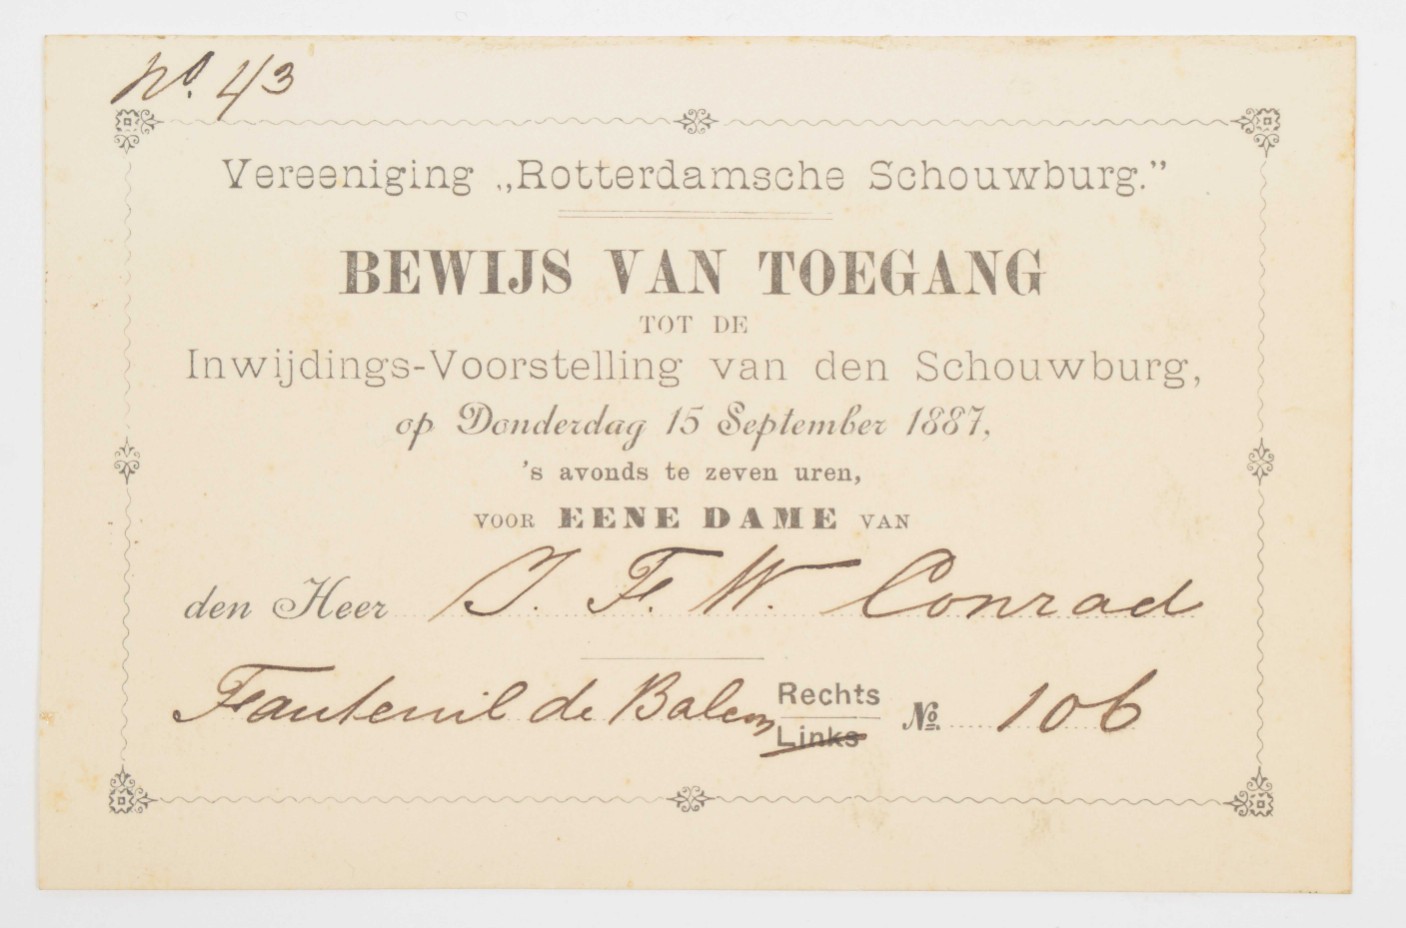 No. 43
Vereeniging „Rotterdamsche Schouwburg.”
BEWIJS VAN TOEGANG
TOT DE
Inwijdings-Voorstelling van den Schouwburg,
op Donderdag 15 September 1887,
's avonds te zeven uren,
VOOR EENE DAME VAN
den Heer J. F. W. Conrad
Fauteuil de Balcon Rechts
Links № 106